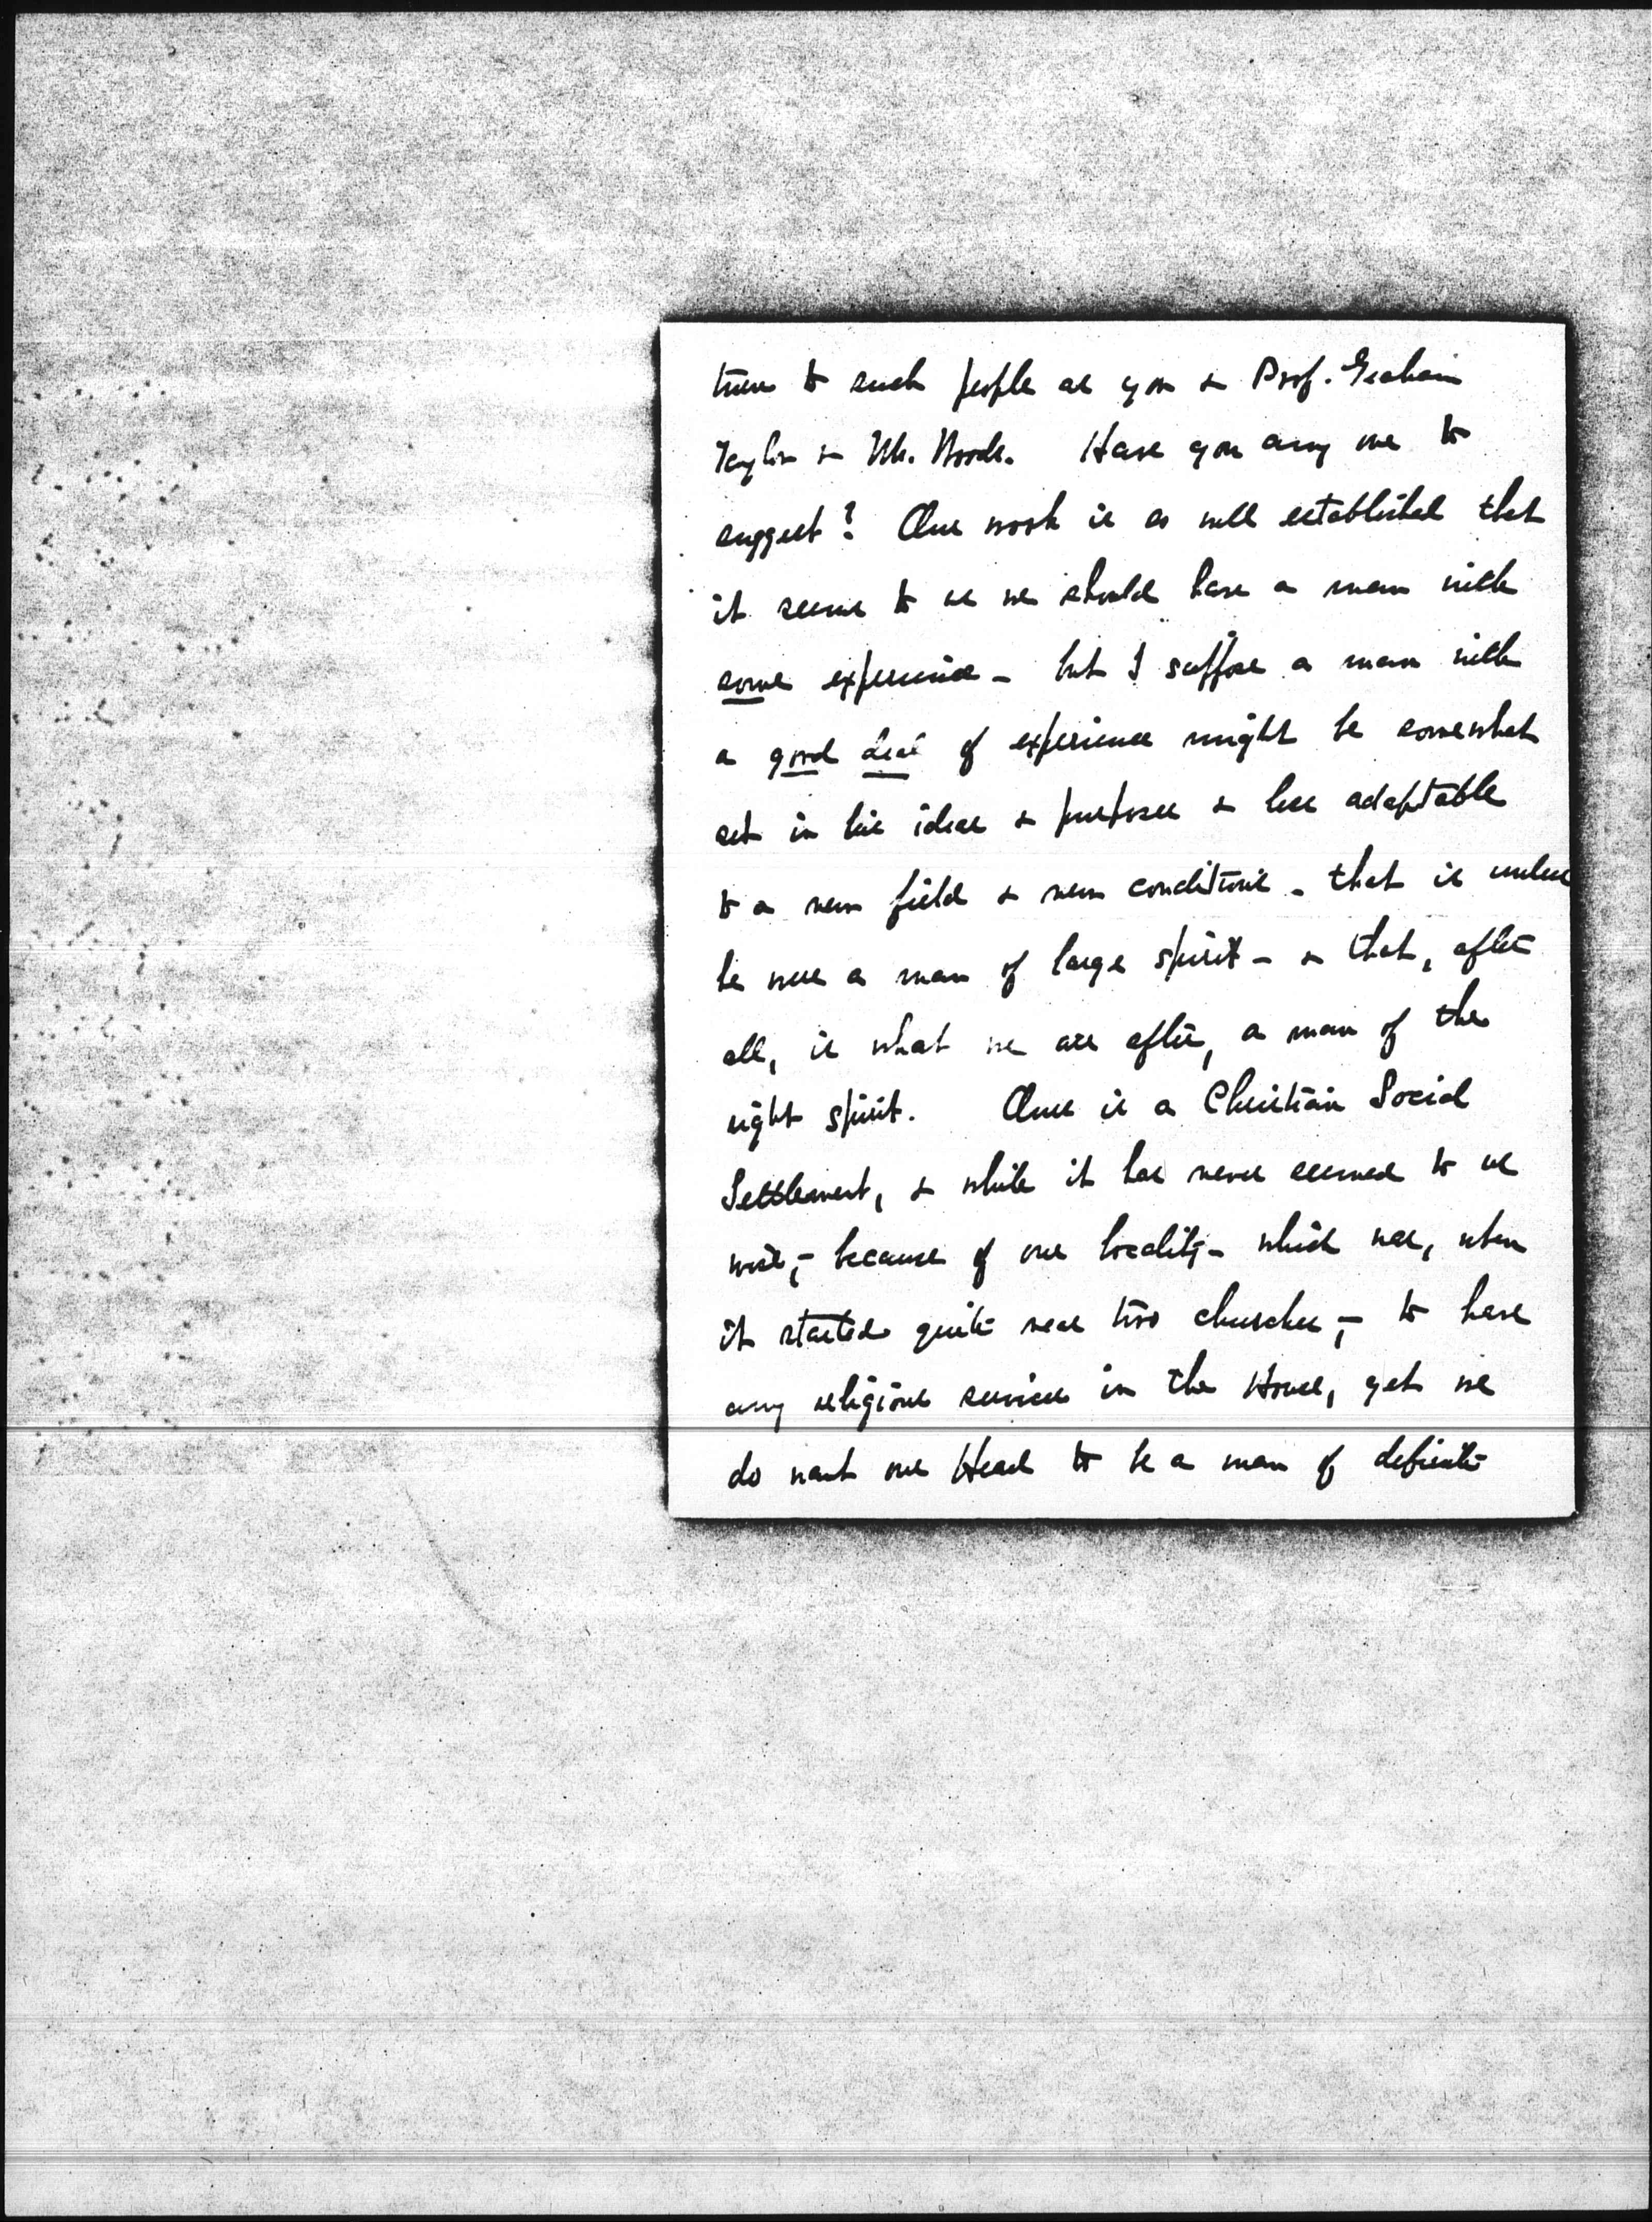 turn to such people as you & Prof. Graham
Taylor & Mr. Woods. Have you any one to
suggest? Our work is so well established that
it seems to us we should have a man with
some experience - but I suppose a man with
a good deal of experience might be somewhat
set in his ideas & purposes & less adaptable
to a new field & new conditions - that is unless
he were a man of large spirit - & that, after
all, is what we are after, a man of the
right spirit. Ours is a Christian Social
Settlement, & while it has never seemed to us
wise, - because of our locality - which was, when
it started quite near two churches, - to have
any religious services in the House, yet we
do want our Head to be a man of definite